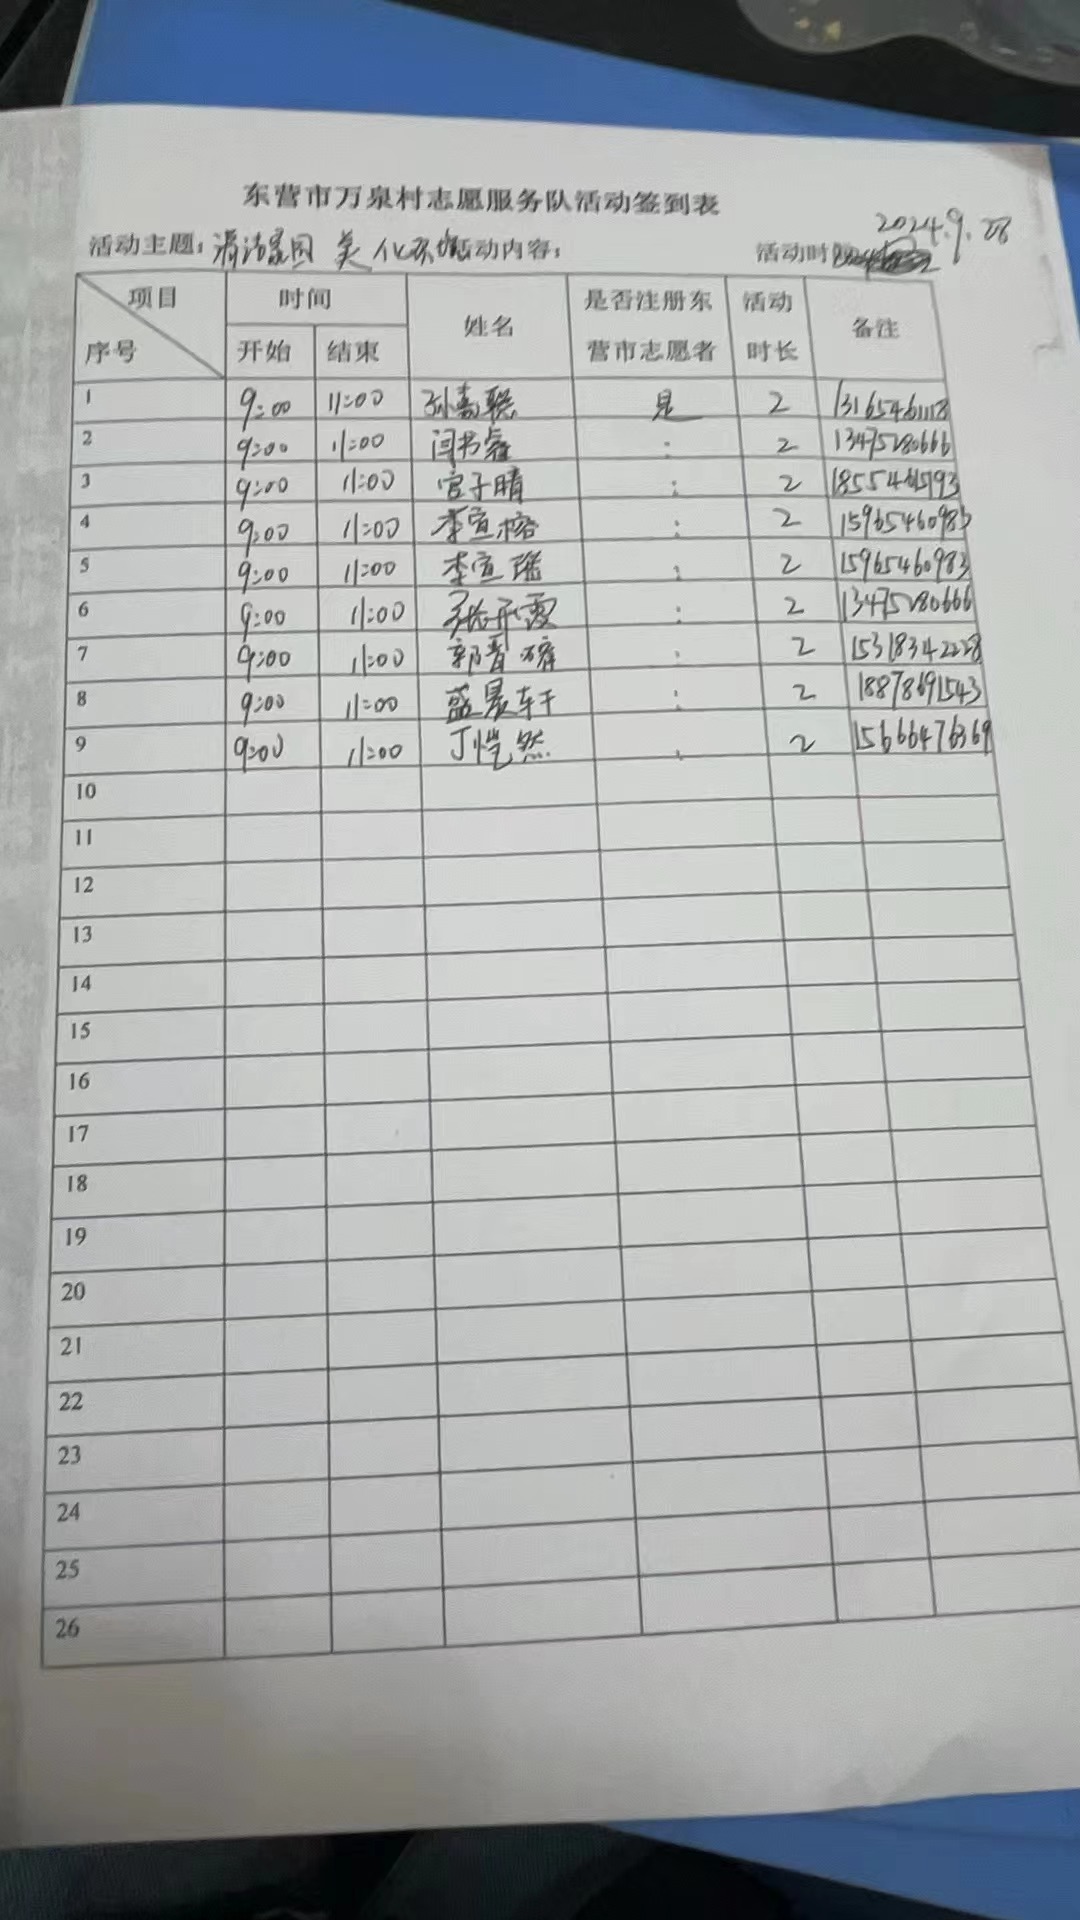 东营市万泉村志愿服务队活动签到表
2024.9.28
活动主题：清洁家园 美化环境 活动内容： 活动时
项目 时间 姓名 是否注册东营市志愿者 活动时长 备注
序号 开始 结束
1 9:00 11:00 孙嘉聪 是 2
2 9:00 11:00 闫书睿 : 2 13475280666
3 9:00 11:00 官子晴 : 2
4 9:00 11:00 李宣榕 : 2 15965460983
5 9:00 11:00 李宣瑶 : 2 15965460983
6 9:00 11:00 : 2 13475280666
7 9:00 11:00 郭晋 : 2 15318342228
8 9:00 11:00 盛 : 2 18878691543
9 9:00 11:00 丁恺然 : 2 15666476369
10
11
12
13
14
15
16
17
18
19
20
21
22
23
24
25
26